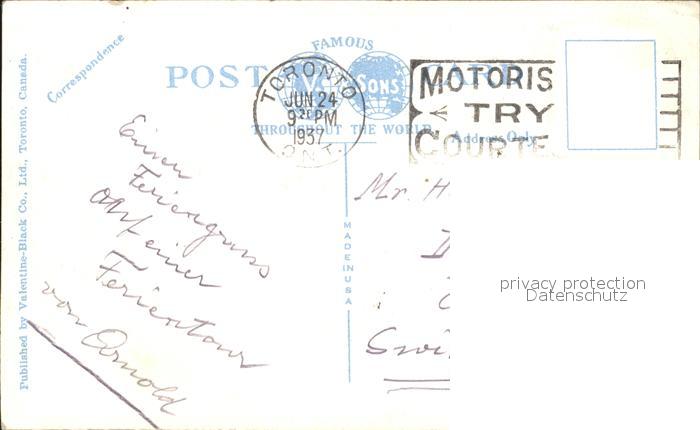 Published by Valentine-Black Co., Ltd., Toronto, Canada.
Correspondence
FAMOUS
POST CARD
SONS
THROUGHOUT THE WORLD
Address Only
TORONTO
JUN 24
9 PM
1937
ONT.
MOTORIS
TRY
COURTE
MADE IN USA
Einen
Feriengruss
auf einer
Ferientour
von Arnold
Mr. H
Swi
privacy protection
Datenschutz